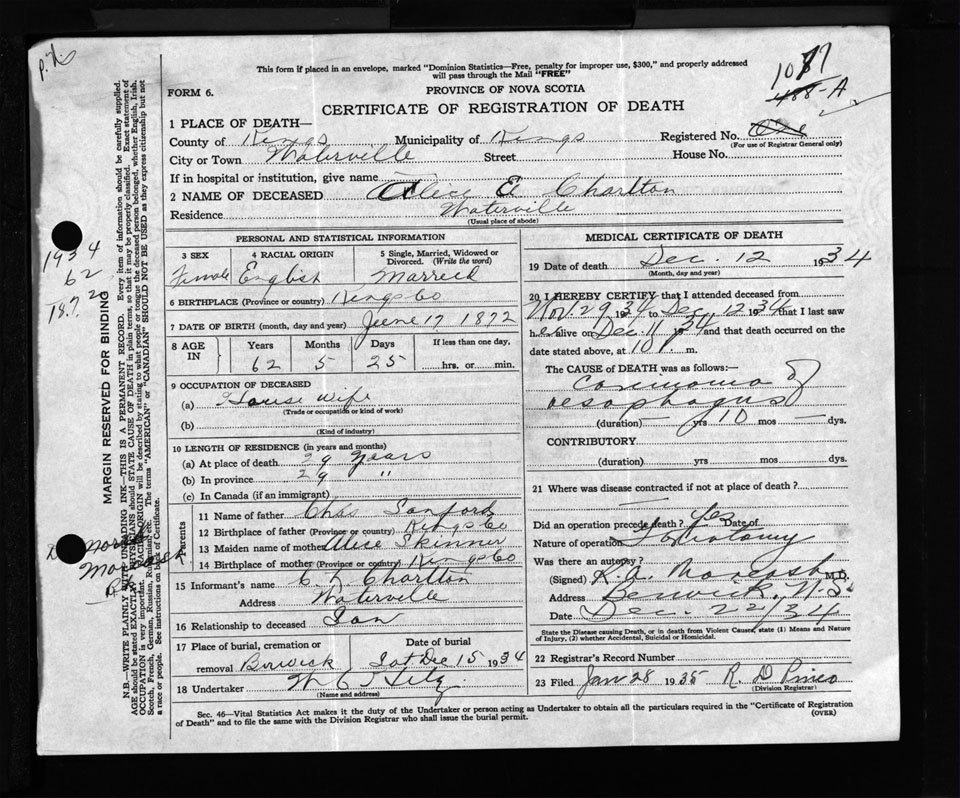 This form if placed in an envelope, marked "Dominion Statistics—Free, penalty for improper use, $300," and properly addressed
will pass through the Mail "FREE"
FORM 6.
PROVINCE OF NOVA SCOTIA
CERTIFICATE OF REGISTRATION OF DEATH
1077
488-A
1 PLACE OF DEATH—
County of Kings Municipality of Kings Registered No.
(For use of Registrar General only)
City or Town Waterville Street House No.
If in hospital or institution, give name
2 NAME OF DECEASED Alice E Charlton
Residence Waterville
(Usual place of abode)
PERSONAL AND STATISTICAL INFORMATION
3 SEX 4 RACIAL ORIGIN 5 Single, Married, Widowed or Divorced. (Write the word)
Female English Married
6 BIRTHPLACE (Province or country) Kings Co
7 DATE OF BIRTH (month, day and year) June 17, 1872
8 AGE IN Years Months Days If less than one day,
62 5 25 hrs. or min.
9 OCCUPATION OF DECEASED
(a) House wife
(Trade or occupation or kind of work)
(b)
(Kind of industry)
10 LENGTH OF RESIDENCE (in years and months)
(a) At place of death 29 years
(b) In province 29 "
(c) In Canada (if an immigrant)
Parents
11 Name of father Chas Sanford
12 Birthplace of father (Province or country) Kings Co
13 Maiden name of mother Alice Skinner
14 Birthplace of mother (Province or country) Kings Co
15 Informant's name Charlton
Address Waterville
16 Relationship to deceased Son
17 Place of burial, cremation or removal Berwick Date of burial Sat Dec 15 1934
18 Undertaker
(Name and address)
MEDICAL CERTIFICATE OF DEATH
19 Date of death Dec. 12 1934
(Month, day and year)
20 I HEREBY CERTIFY that I attended deceased from
Nov. 29 1934 to Dec. 12 1934 that I last saw
her alive on Dec. 11, 34 and that death occurred on
date stated above, at 10 m.
The CAUSE of DEATH was as follows:—
Carcinoma of
oesophagus
(duration) yrs 10 mos dys.
CONTRIBUTORY
(duration) yrs mos dys.
21 Where was disease contracted if not at place of death?
Did an operation precede death? Yes Date of
Nature of operation
Was there an autopsy?
(Signed) M.D.
Address Berwick, N.S.
Date Dec. 22/34
State the Disease causing Death, or in death from Violent Causes, state (1) Means and Nature
of Injury, (2) whether Accidental, Suicidal or Homicidal.
22 Registrar's Record Number
23 Filed Jan 28 1935 R. D Pineo
(Division Registrar)
Sec. 46—Vital Statistics Act makes it the duty of the Undertaker or person acting as Undertaker to obtain all the particulars required in the "Certificate of Registration
of Death" and to file the same with the Division Registrar who shall issue the burial permit.
(OVER)
MARGIN RESERVED FOR BINDING
N.B.—WRITE PLAINLY WITH UNFADING INK—THIS IS A PERMANENT RECORD. Every item of information should be carefully supplied.
AGE should be stated EXACTLY. PHYSICIANS should STATE CAUSE OF DEATH in plain terms, so that it may be properly classified. Exact statement of
OCCUPATION is very important. RACIAL ORIGIN will be described by stating to what people or tongue the deceased person belonged, whether English, Irish,
Scotch, French, German, Russian, Ruthenian, etc. The terms "AMERICAN" or "CANADIAN" SHOULD NOT BE USED as they express citizenship but not
a race or people. See instructions on back of Certificate.
1934
62
1872